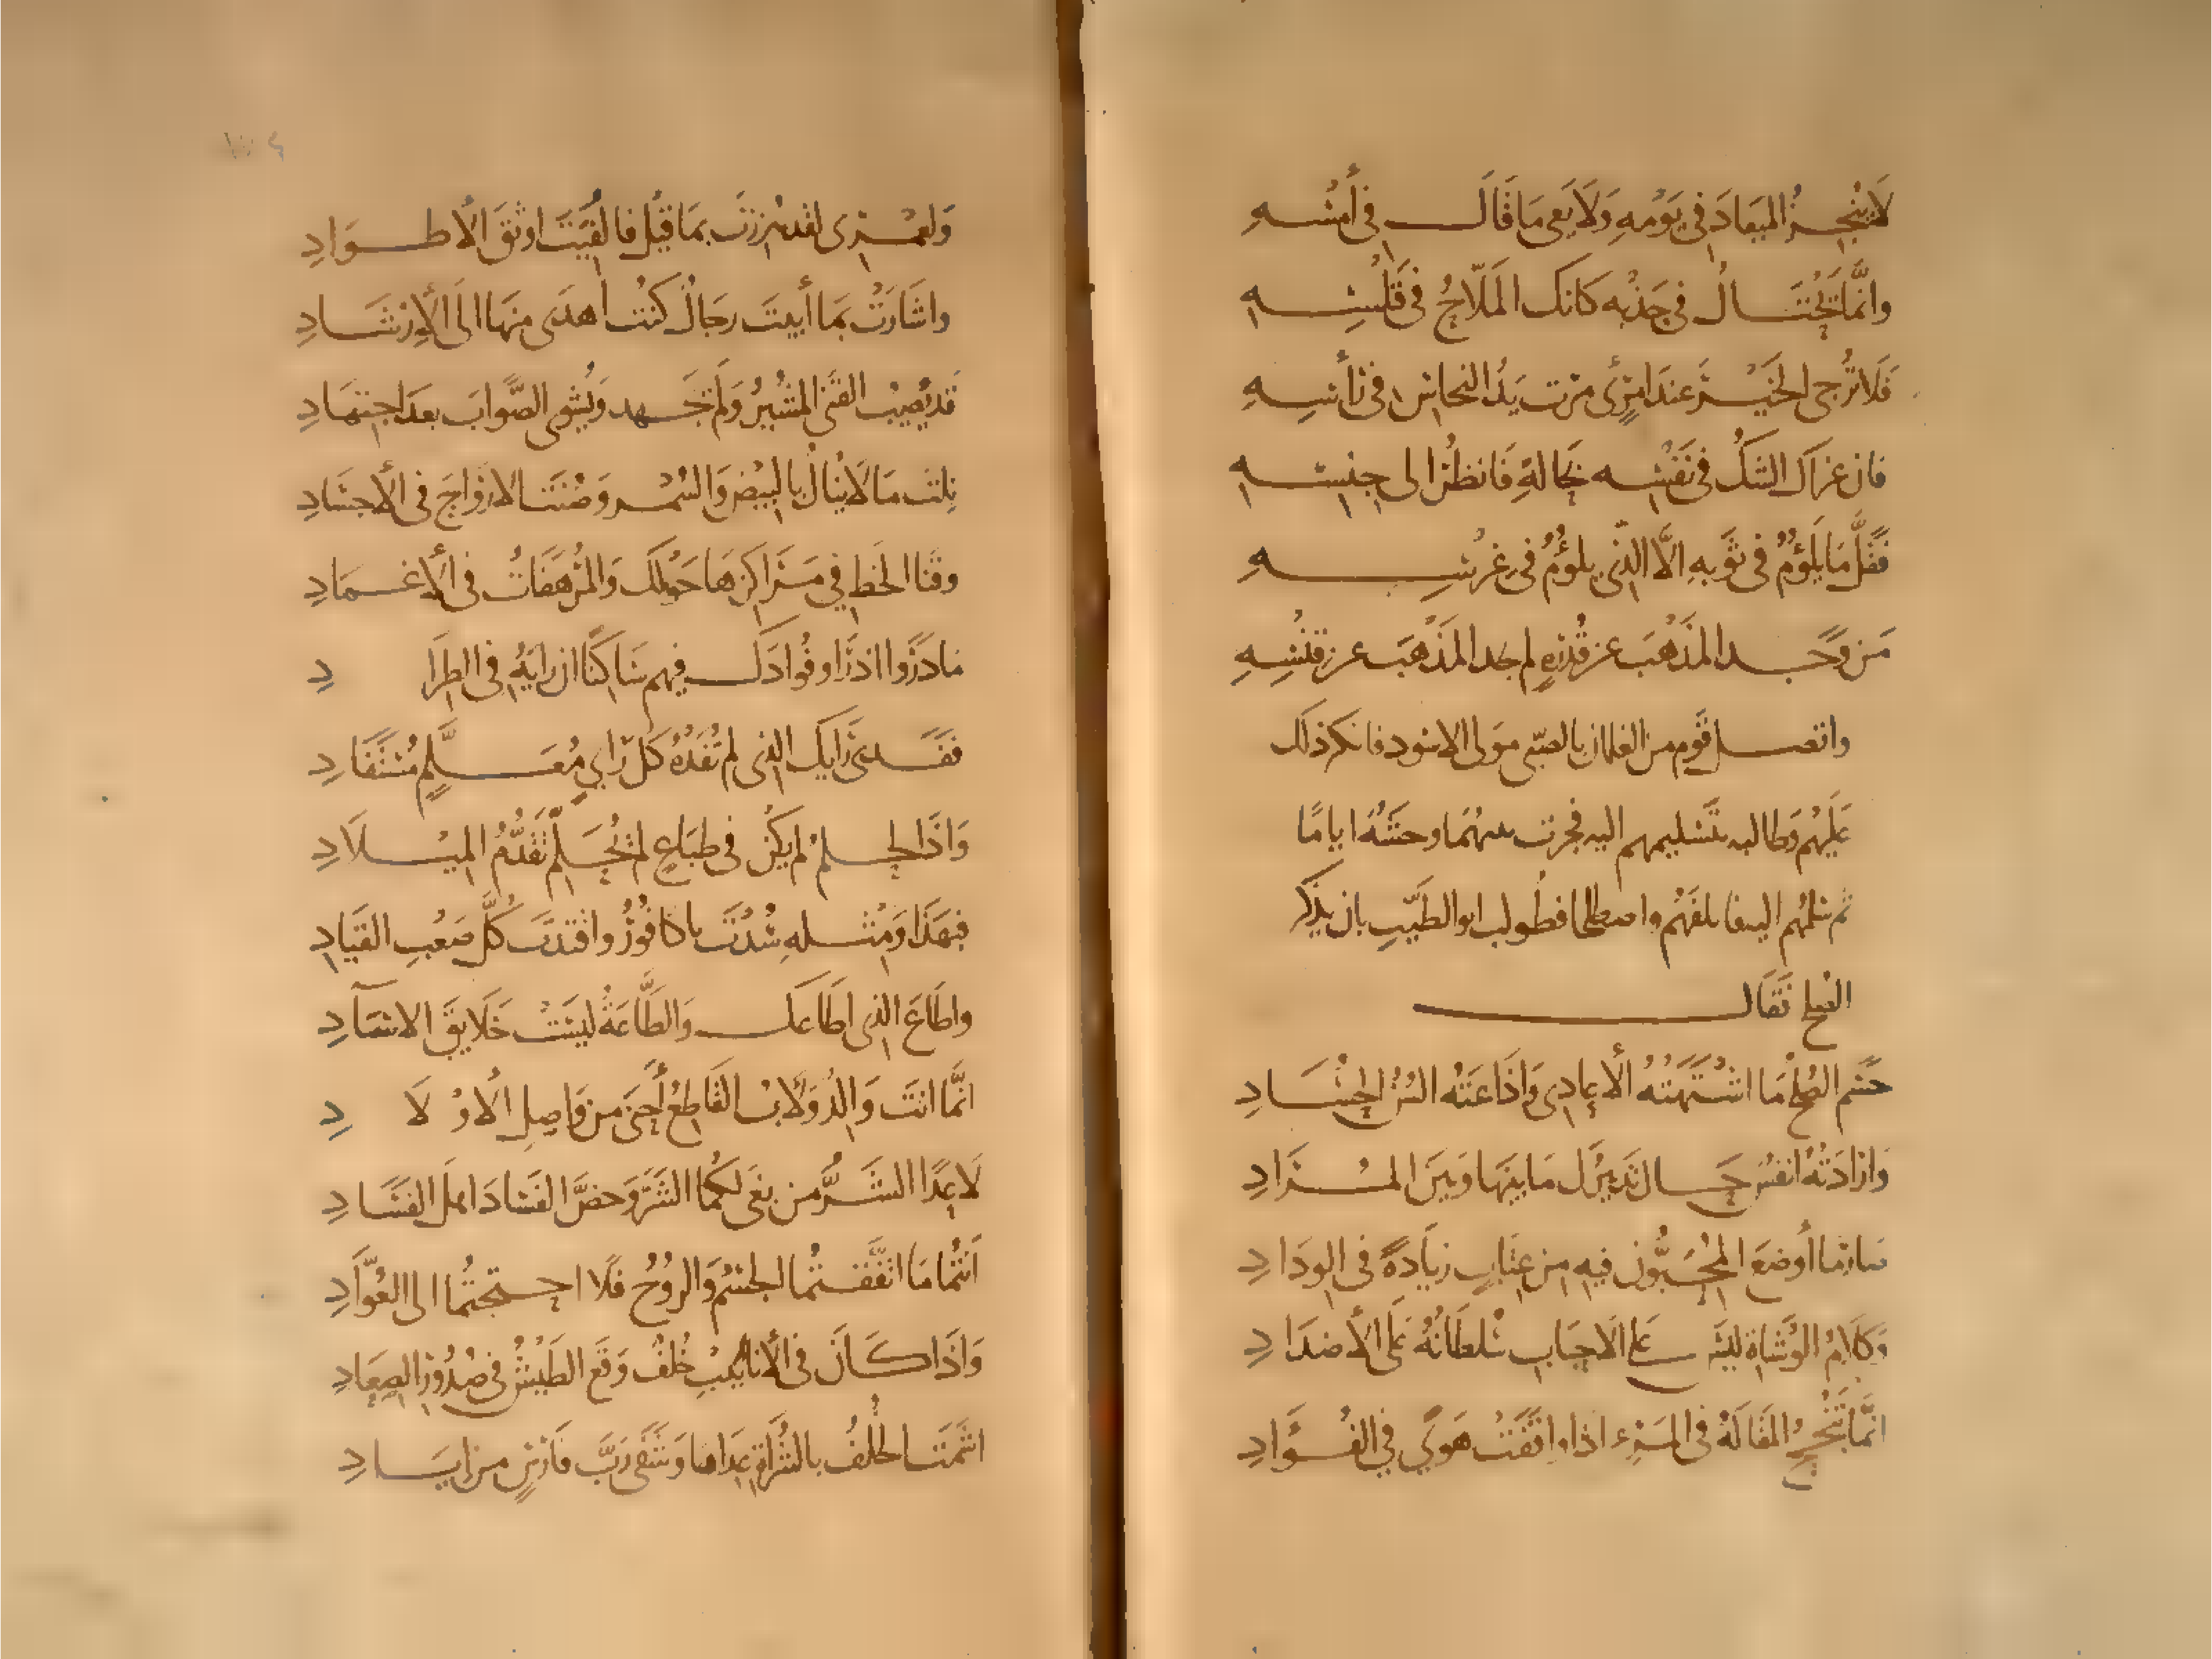 لَا يُنْجِزُ المِيعَادَ فِى يَوْمِهِ وَلَا يَعِى مَا قَالَ فِى أَمْسِهِ
وانَّمَا تَحْتَالُ فى جَذْبِه كَانَّكَ المَلّاحُ فى قَلْسِهِ
فَلَا تُرَجِّى الخَيْرَ عندَ امْرِئٍ مرّت يَدُ النخاسِ فى رَأْسِهِ
فان عَرَاكَ الشَكُّ فى نَفْسِه بحَالةٍ فَانظُرْ الى جِنسِهِ
فَقَلَّ مَا يَلؤُمُ فى ثَوبِهِ الَّا الذِّى يلؤُمُ فى غِرْسِهِ
مَن وَجَد المَذْهَبَ عن قَدْرِهِ لم يجد المَذْهَبَ عن قَنْسِهِ
واتصل قَوم من الغلمان بالصبّى مَولى الاسود فانكر ذلك
عَلَيْهم وَطالبه بتَسْليمهم اليه فجرت بينهُمَا وحشَةُ ايامًا
ثم سَلمَهُم اليه فاتلفَهُم واصطلحا فطُولب ابو الطَيّبِ بان يذكر
الصلح فَقَال
حَسَم الصُلحُ مَا اشْتَهَتْهُ الأَعادِى وَاذَاعَتْه السُنُ الحُسَّادِ
وَارَادَتْهُ انفسٌ حَالَ تَدبيرُكَ مَا بَينهَا وَبَينَ المُرَادِ
صَارَ مَا أَوضعَ المُخِبُّونَ فيهِ مِن عتَابٍ زيَادةً فى الودَادِ
وَكَلَامُ الوُشَاةِ ليسَ عَلى الاحبَابِ سُلطَانُهُ عَلى الأَضدَادِ
انَّمَا تُنْجِحُ المَقَالَةُ فى المَرْءِ اذا وافَقَتْ هَوًى فى الفُؤَادِ
وَلعَمْرِى لقد هُزِزتَ بمَا قيْلَ فالُفيْتَ اوثَقَ الأَطوَادِ
واشَارَتْ بمَا أَبيتَ رجَالٌ كنْتَ أهدَى منهَا الَى الأِرْشَادِ
قَد يُصِيبُ الفَتى المُشيْرُ وَلَم يَجهد وَيُشوِى الصَّوابَ بعدَ اجتهَادِ
نِلتَ مَا لَا يُنَالُ بالبيْضِ وَالسُمْرِ وَصُنْتَ الارْوَاجَ فى الأَجسَادِ
وقَنا الخَطِ في مَرَاكزهَا حَولَكَ وَالمُرْهَفَاتُ فى الأَغمَادِ
مَا دَرَوا اذ رَاَو فُوَادَكَ فيهم سَاكنًا ان رايَهُ فى الطِرَادِ
فَفَدَى رَايَكَ الذى لم تُفَدْهُ كلُ رَايٍ مُعَلَّمٍ مُسْتَفَادِ
وَاذَا الحِلمُ لم يكُن فى طبَاعٍ لم يُحَلِّم تَقَدُّمُ المِيْلَادِ
فبهَذَا وَمِثلهِ سُدْتَ يا كَافُورُ واقتَدتَ كُلَّ صَعْبِ القيَادِ
واطَاعَ الذى اطَاعكَ وَالطَّاعَةُ ليسَتْ خَلَايقَ الاسَآدِ
انَّمَا انتَ وَالِدٌ وَالَابُ القَاطعُ أَحنَى من وَاصِلِ الأَوْلَادِ
لَا عَدَا الشَرُّ من بغَى لكُما الشَرَ وَخصَّ الفسَادَ اهلَ الفَسَادِ
أنتُمَا مَا اتَّفَقتُما الجسْمُ وَالرُوْحُ فَلا احتَجتُمَا الى العُوَّادِ
وَاذَا كَانَ فى الأَنابيْبِ خُلفٌ وَقَع الطَيْشُ فى صُدُورِ الصِعَادِ
اشمَتَ الخُلفُ بالشُرَاةِ عِدَاهَا وَشَفَى رَبَّ فَارسٍ من ايَادِ